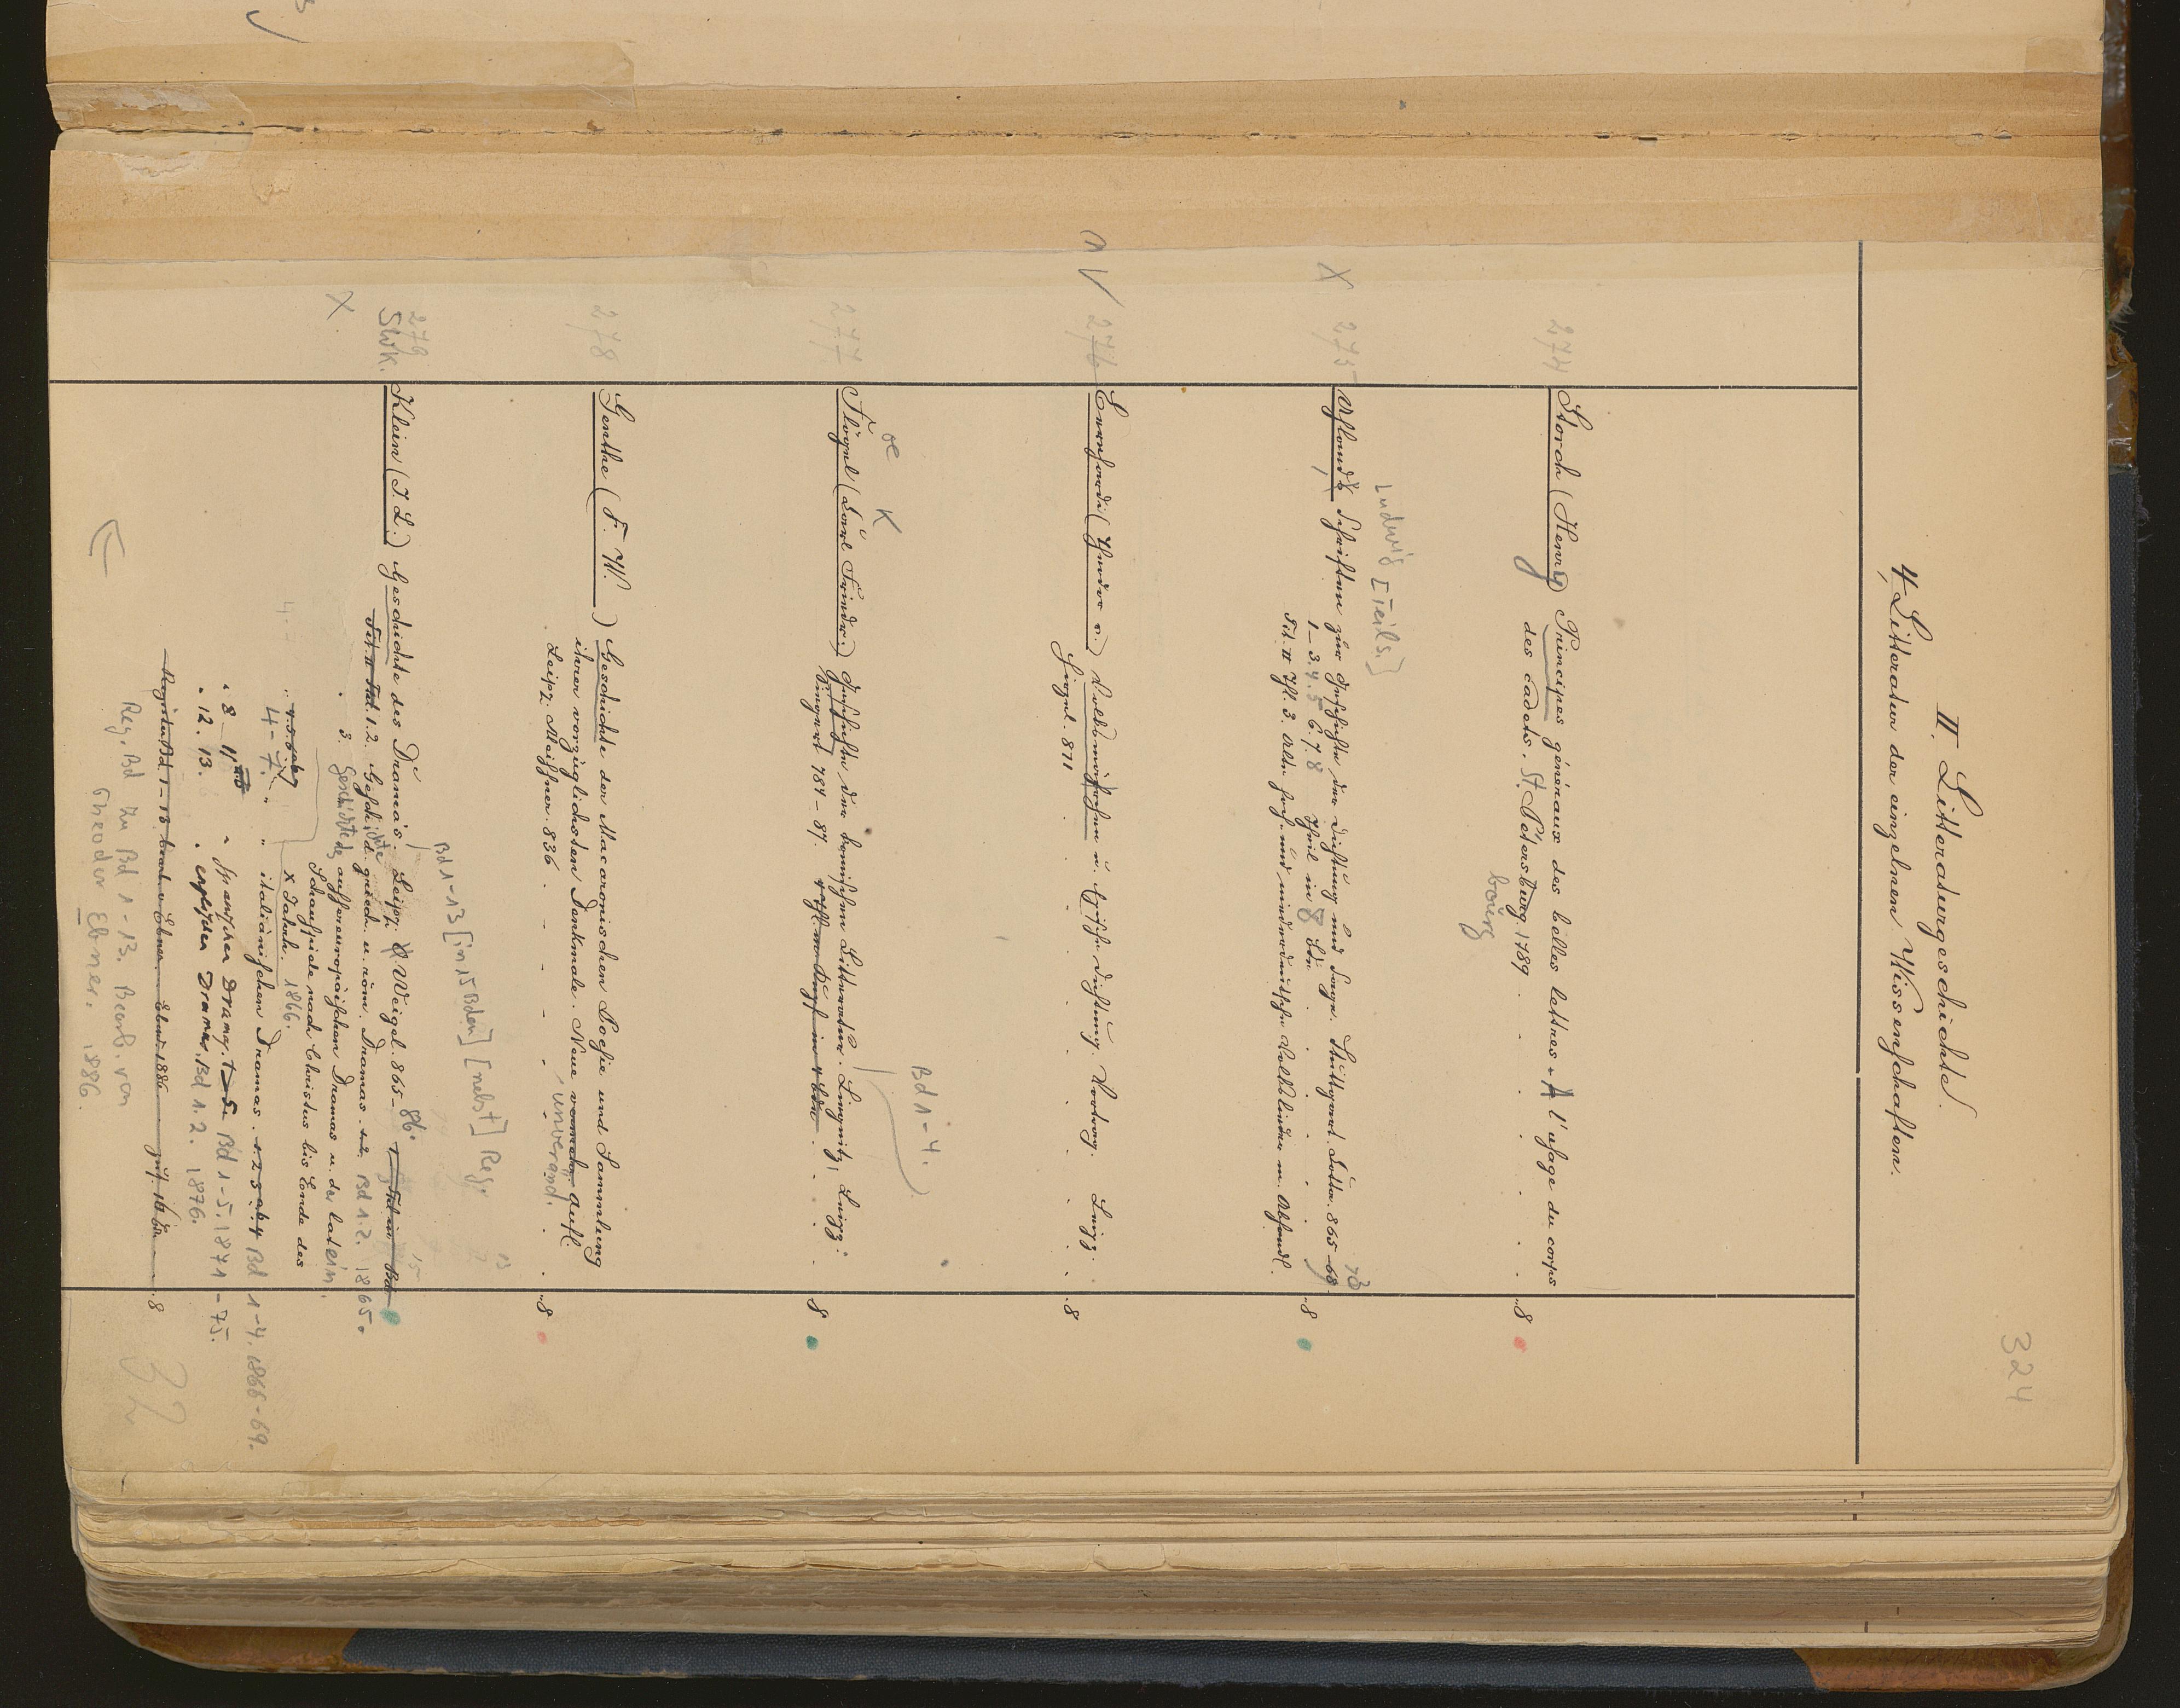 324
II. Litteraturgeschichte.
4, Litteratur der einzelnen Wissenschaften.
274 Storch (Henry) Principes généraux des belles lettres. A l'usage du corps
des cadets. St. Pétersburg 1789 . . . 8
bourg
Ludwig [Teils.]
X 275 Uhlands Schriften zur Geschichte der Dichtung und Sage. Stuttgart. Cotta. 865-68 73
1-3. 4. 5 6. 7. 8 Theil in 8 Bdn . . . 8
Tit. II Thl. 3. Alte hoch- und niederdeutsche Volkslieder m. Abhandl.
V 276 Bernhardi (Theodor v.) Volksmärchen u. epische Dichtung. Vortrag. Leipz.
Hirzel. 871 . . . 8
oe K
Bd 1-4.
277 Flögel (Carl Friedr.) Geschichte der komischen Litteratur. Liegnitz, Leipz.
Siegert 784-87. . . . 8
278 Genthe (F. W. ) Geschichte der Macaronischen Poesie und Sammlung
ihrer vorzüglichsten Denkmale. Neue Aufl.
, unveränd.
Leipz. Meissner. 836 . . . 8
Bd 1-13 [in 15 Bden] [nebst] Reg.
279 Klein (J. L.) Geschichte des Drama's. Leipz. T. O. Weigel. 865- 86.
SWK.
X. Tit. II Bd. 1. 2. Geschichte d. griech. u. röm. Dramas. Bd 1. 2. 1865.
3. Geschichte d. aussereuropäischen Dramas u. der latein.
Schauspiele nach Christus bis Ende des
X Jahrh. 1866.
4-7. " " italiänischen Dramas. Bd 1-4. 1866-69.
" 8-11 " spanischen Dramas. Bd 1-5. 1871-75.
" 12. 13. " englischen Dramas. Bd 1. 2. 1876.
Register Bd 1-13 bearb. v. Ebner. Ebend. 1886 . . . 8
Reg. Bd zu Bd 1-13. Bearb. von
Theodor Ebner. 1886.